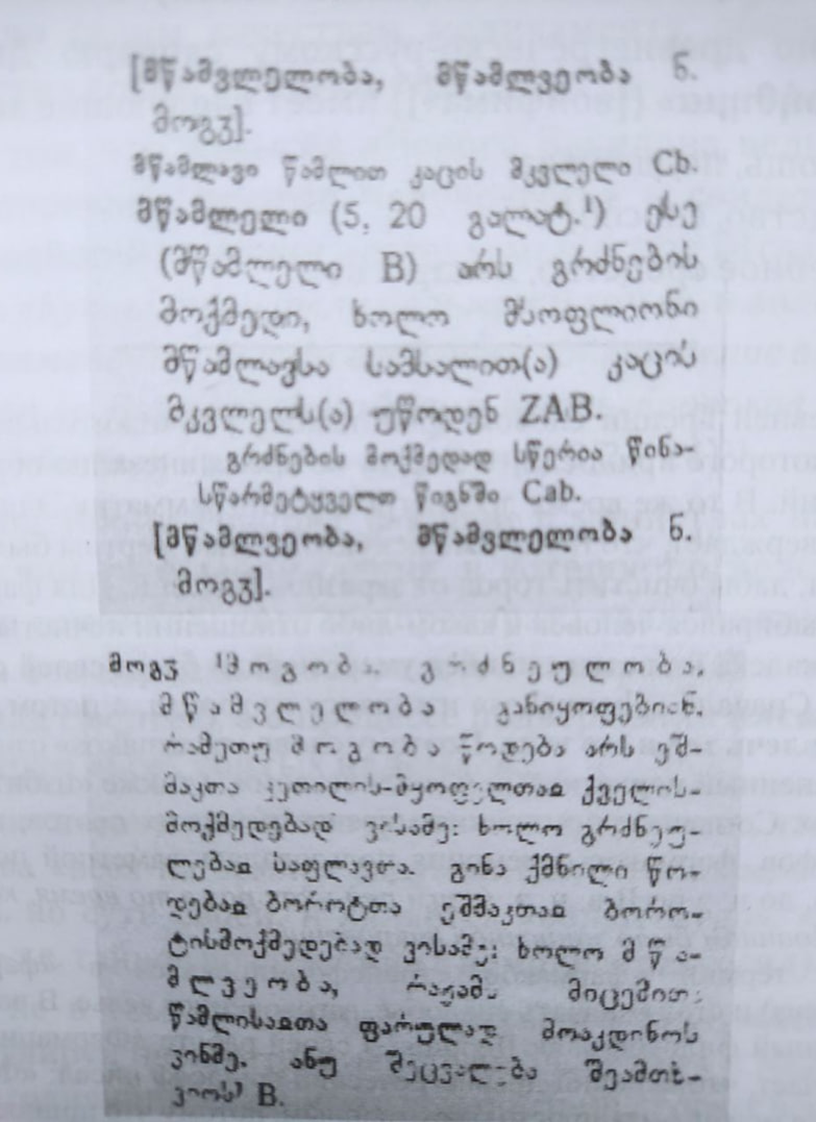 [მწამვლელობა, მწამლვეობა ნ.
მოგჳ].
მწამლავი წამლით კაცის მკვლელი Cb.
მწამლელი (5, 20 გალატ.) ესე
(მწამლელი B) არს გრძნების
მოქმედი, ხოლო მსოფლიონი
მწამლავსა სამსალით(ა) კაცის
მკვლელს(ა) უწოდენ ZAB.
გრძნების მოქმედად სწერია წინა-
სწარმეტყველთ წიგნში Cab.
[მწამლვეობა, მწამვლელობა ნ.
მოგჳ].
მოგჳ მოგობა, გრძნეულობა,
მწამვლელობა განიყოფებიან.
რამეთუ მოგობა წოდება არს ეშ-
მაკთა კეთილის-მყოფელთაჲ ქველის-
მოქმედებად ვისამე; ხოლო გრძნეუ-
ლებაჲ საფლავთა. გინა ქმნილი წო-
დებაჲ ბოროტთა ეშმაკთაჲ ბორო-
ტისმოქმედებად ვისამე; ხოლო მწა-
მლვეობა, რაჟამს მიცემით
წამლისაჲთა ფარულად მოაკდინოს
ვინმე. ანუ შეცვალება შეამთხ-
ვიოს B.